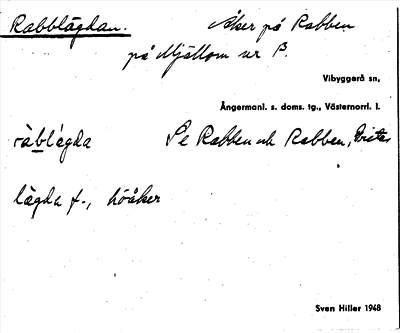 Rabblägdan. Åker på Rabben
på Mjällom nr 13.
Vibyggerå sn,
Ångermanl. s. doms. tg., Västernorrl. l.
ràblègda Se Rabben och Rabben,
lägda f., höåker
Sven Hiller 1948